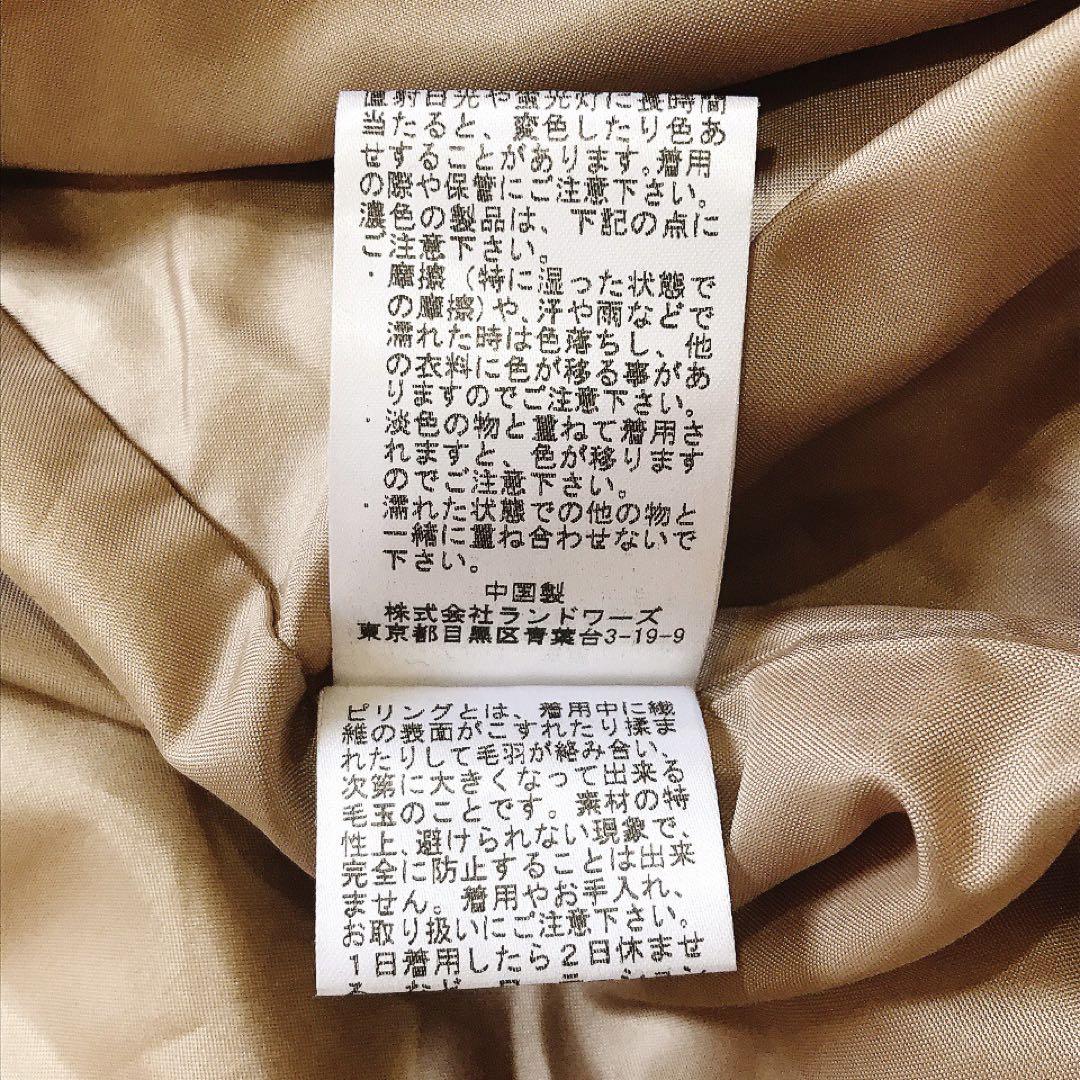 直射日光や蛍光灯に長時間
当たると、変色したり色あ
せすることがあります。着用
の際や保管にご注意下さい。
濃色の製品は、下記の点に
ご注意下さい。
・摩擦(特に湿った状態で
の摩擦)や、汗や雨などで
濡れた時は色落ちし、他
の衣料に色が移る事があ
りますのでご注意下さい。
・淡色の物と重ねて着用さ
れますと、色が移ります
のでご注意下さい。
・濡れた状態での他の物と
一緒に重ね合わせないで
下さい。
中国製
株式会社ランドワーズ
東京都目黒区青葉台3-19-9
ピリングとは、着用中に繊
維の表面がこすれたり揉ま
れたりして毛羽が絡み合い、
次第に大きくなって出来る
毛玉のことです。素材の特
性上、避けられない現象で、
完全に防止することは出来
ません。着用やお手入れ、
お取り扱いにご注意下さい。
1日着用したら2日休ませ